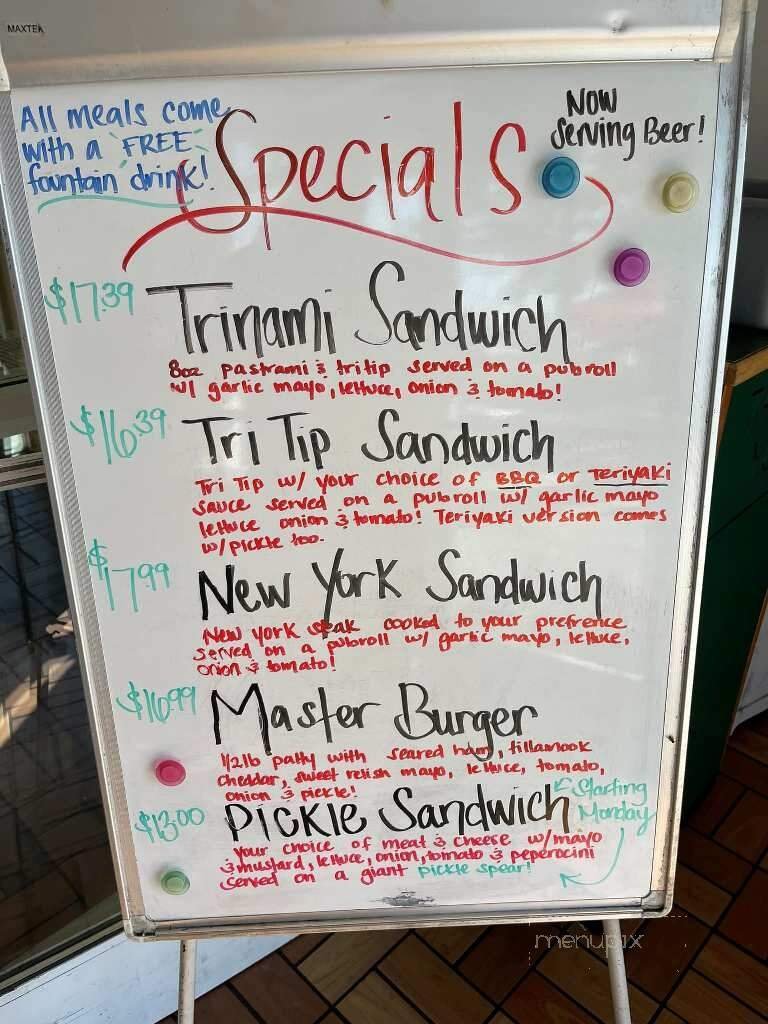 MAXTEK
All meals come
with a FREE
fountain drink!
Specials
Now
Serving Beer!
$17.39
Trinami Sandwich
8oz pastrami & tritip served on a pubroll
w/ garlic mayo, lettuce, onion & tomato!
$16.39
Tri Tip Sandwich
Tri Tip w/ your choice of BBQ or Teriyaki
sauce served on a pubroll w/ garlic mayo
lettuce onion & tomato! Teriyaki version comes
w/pickle too.
$17.99
New York Sandwich
New York steak cooked to your prefrence
served on a pubroll w/ garlic mayo, lettuce,
onion & tomato!
$16.99
Master Burger
1/2lb patty with seared ham, tillamook
cheddar, sweet relish mayo, lettuce, tomato,
onion & pickle!
$13.00
Pickle Sandwich
Starting
Monday
Your choice of meat & cheese w/mayo
& mustard, lettuce, onion, tomato & peperocini
served on a giant pickle spear!
menupix